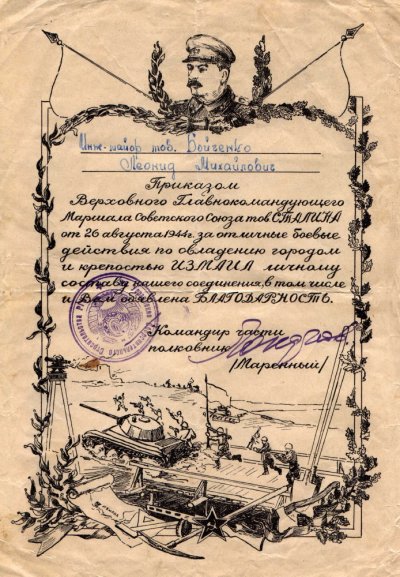 Инж-майор тов. Бойченко
Леонид Михайлович
Приказом
Верховного Главнокомандующего
Маршала Советского Союза тов СТАЛИНА
от 26 августа 1944г. за отличные боевые
действия по овладению городом
и крепостью ИЗМАИЛ личному
составу нашего соединения, в том числе
и Вам объявлена БЛАГОДАРНОСТЬ.
Командир части
полковник
/Маренный/